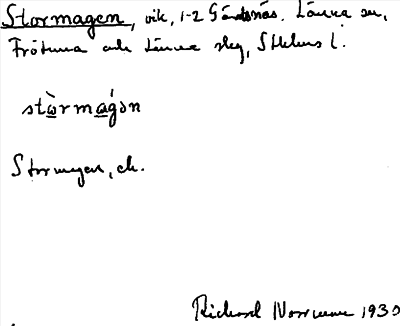 Stormagen, vik, 1-2 Gärdsnäs. Länna sn,
Frötuna och Länna skg, Sthlms l.
stòrmagən
Stormagen, ek.
Richard 1930